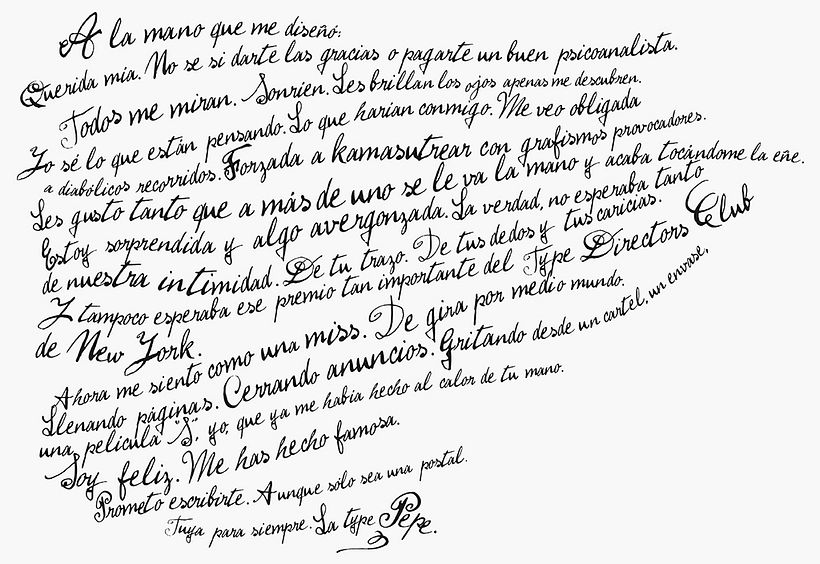 A la mano que me diseñó:
Querida mía. No se si darte las gracias o pagarte un buen psicoanalista.
Todos me miran. Sonríen. Les brillan los ojos apenas me descubren.
Yo sé lo que están pensando. Lo que harían conmigo. Me veo obligada
a diabólicos recorridos. Forzada a kamasutrear con grafismos provocadores.
Les gusto tanto que a más de uno se le va la mano y acaba tocándome la eñe.
Estoy sorprendida y algo avergonzada. La verdad, no esperaba tanto
de nuestra intimidad. De tu trazo. De tus dedos y tus caricias.
Y tampoco esperaba ese premio tan importante del Type Directors Club
de New York.
Ahora me siento como una miss. De gira por medio mundo.
Llenando páginas. Cerrando anuncios. Gritando desde un cartel, un envase,
una película "S", yo, que ya me había hecho al calor de tu mano.
Soy feliz. Me has hecho famosa.
Prometo escribirte. Aunque sólo sea una postal.
Tuya para siempre. La type Pepe.